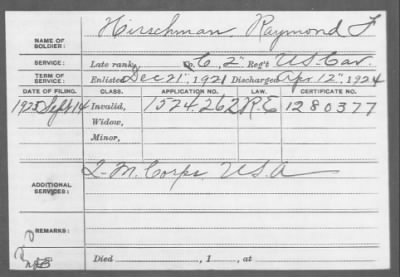 NAME OF SOLDIER: Hirschman Raymond F
SERVICE: Late rank, Co C, 2" Reg't U.S. Cav.
TERM OF SERVICE: Enlisted Dec 21", 1921 Discharged Apr. 12", 1924
DATE OF FILING. CLASS. APPLICATION NO. LAW. CERTIFICATE NO.
1925 Sept 14 Invalid, 1524.262 R.E 1280377
Widow,
Minor,
ADDITIONAL SERVICES: Q-M. Corps. U.S.A
REMARKS:
Died , 1 , at